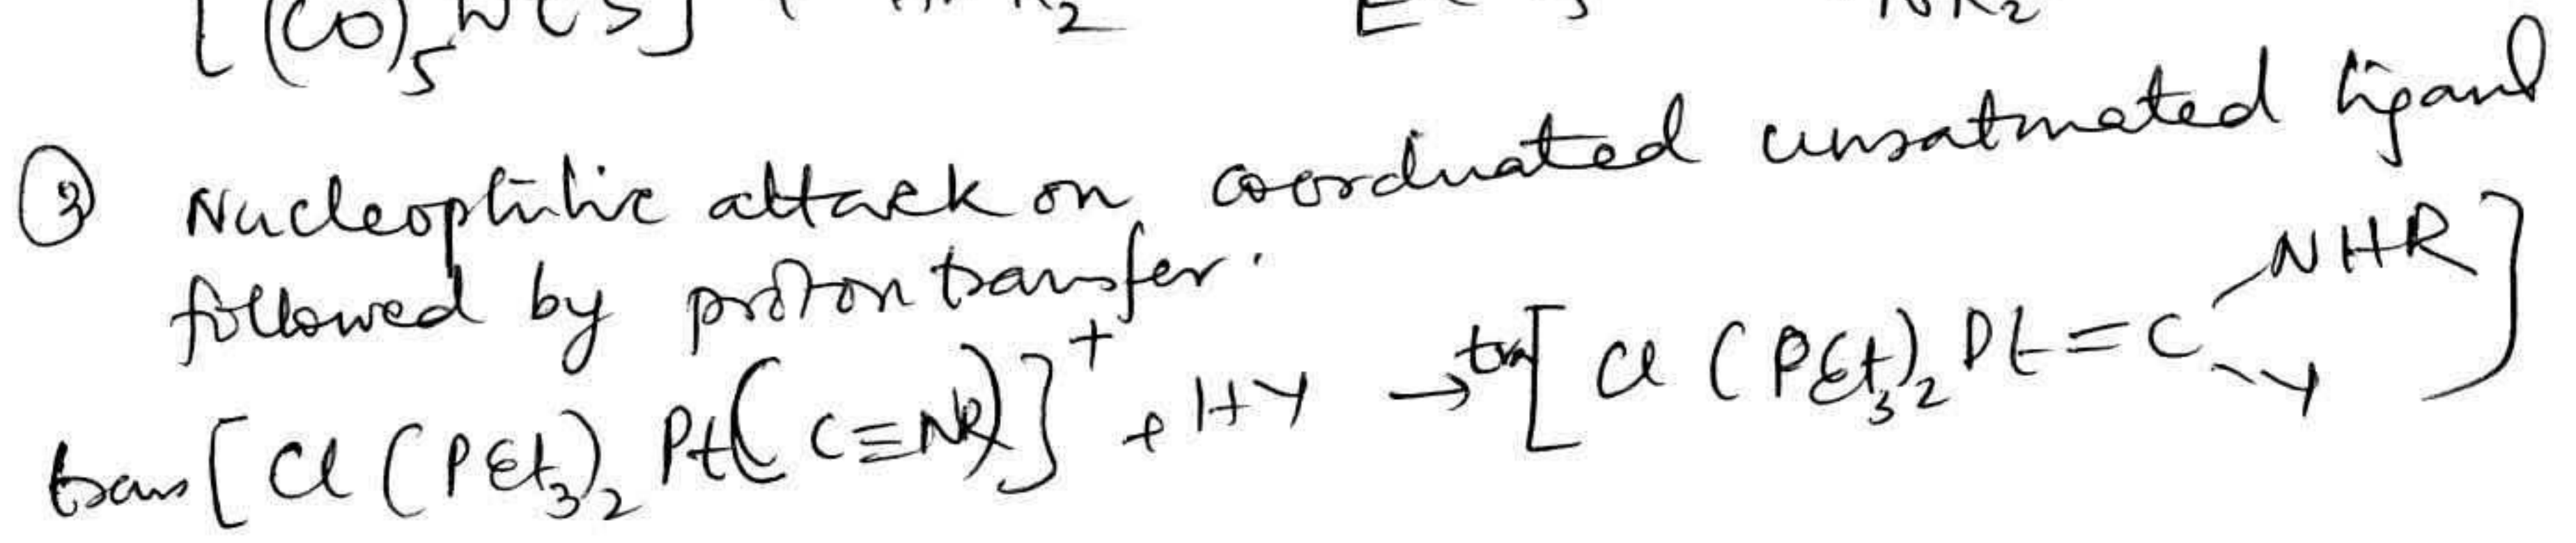 [(CO)₅WCS]
③ Nucleophilic attack on coordinated unsaturated ligand
followed by proton transfer.
trans [Cl (PEt₃)₂ Pt(C≡NR)]⁺ + HY → tra[Cl (PEt₃)₂ Pt=C NHR Y]